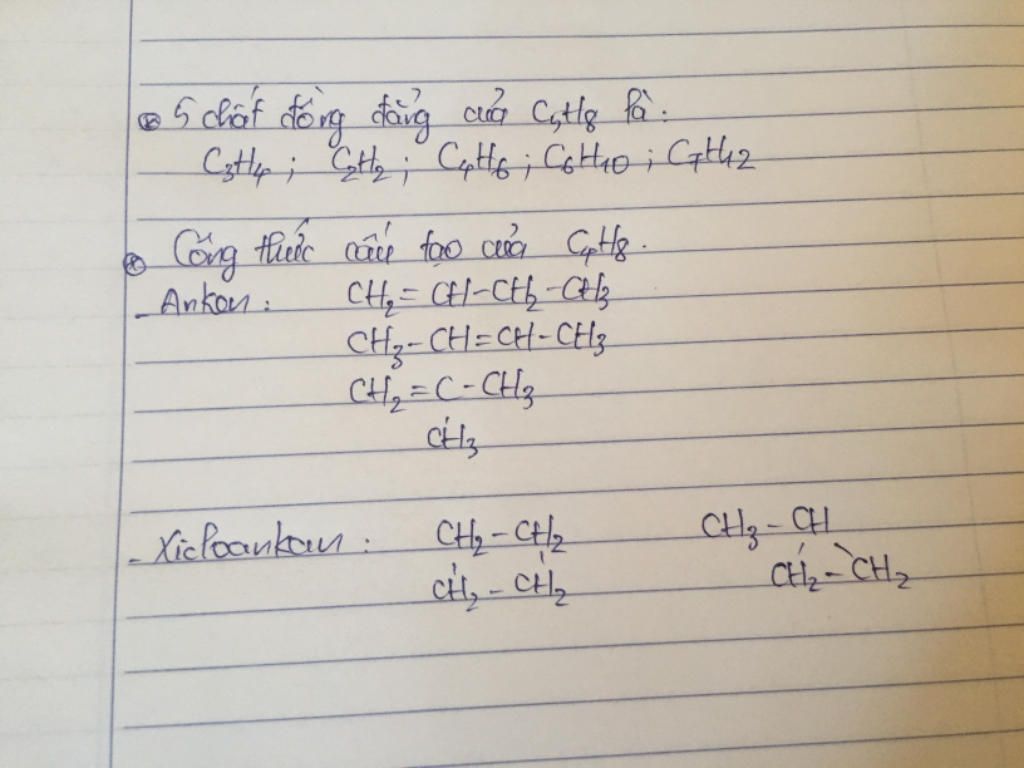 ⊛ 5 chất đồng đẳng của C₅H₈ là:
C₃H₄ ; C₂H₂ ; C₄H₆ ; C₆H₁₀ ; C₇H₁₂
⊛ Công thức cấu tạo của C₄H₈.
- Anken : CH₂=CH-CH₂-CH₃
CH₃-CH=CH-CH₃
CH₂=C-CH₃
CH₃
- Xicloankan : CH₂-CH₂ CH₃-CH
CH₂-CH₂ CH₂-CH₂